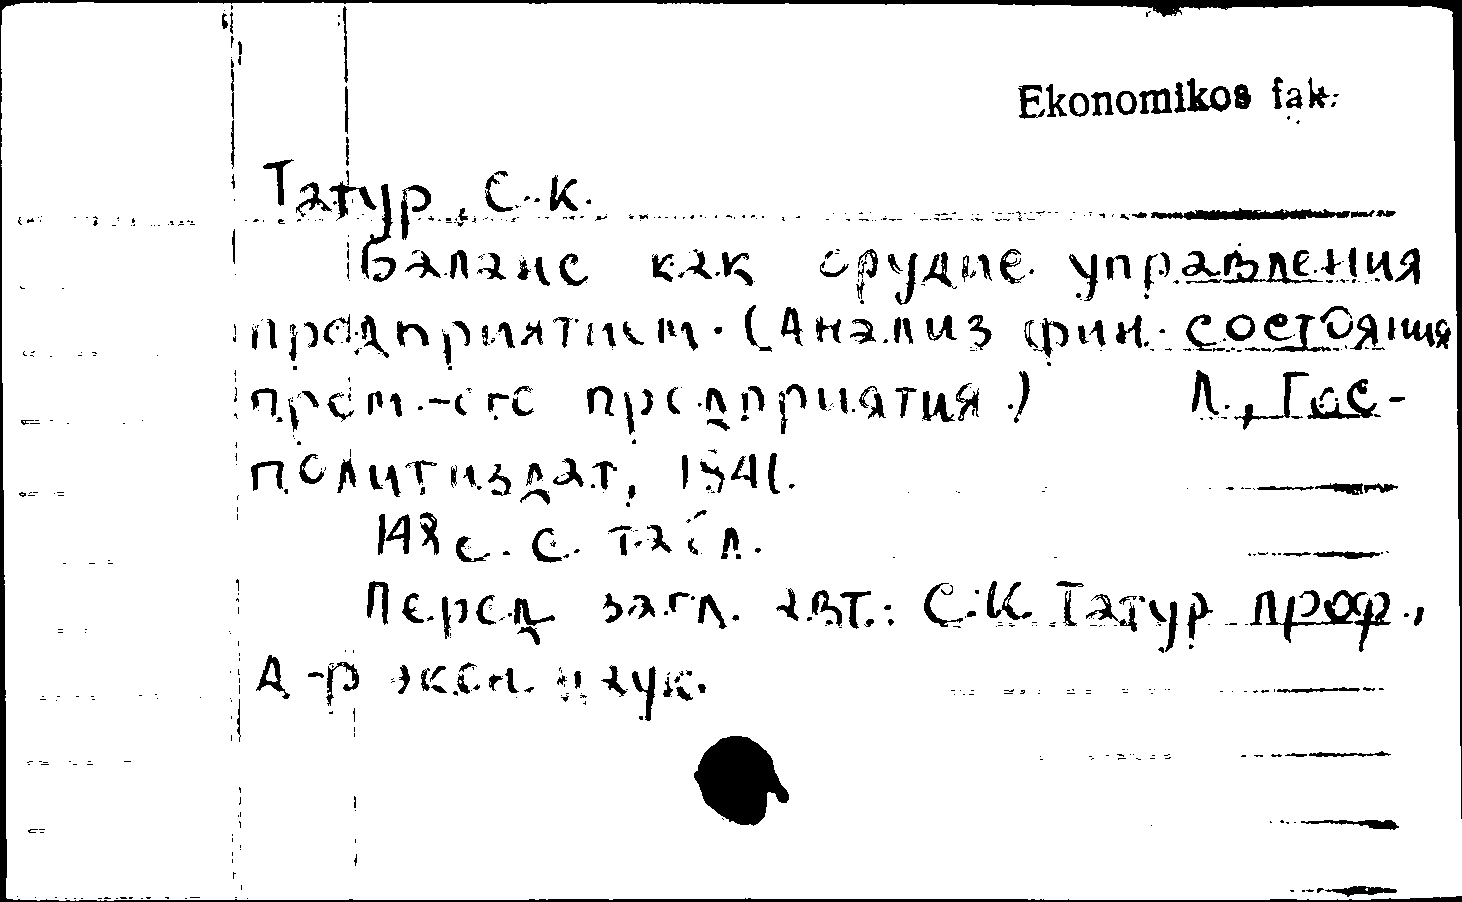 Ekonomikos fak.
Татур, С.К.
Баланс как орудие управления
предприятием. (Анализ фин. состояния
пром.-ого предприятия.) Л., Гос-
политиздат, 1941.
148 с. с табл.
Перед загл. авт.: С.К. Татур проф.,
д-р экон. наук.